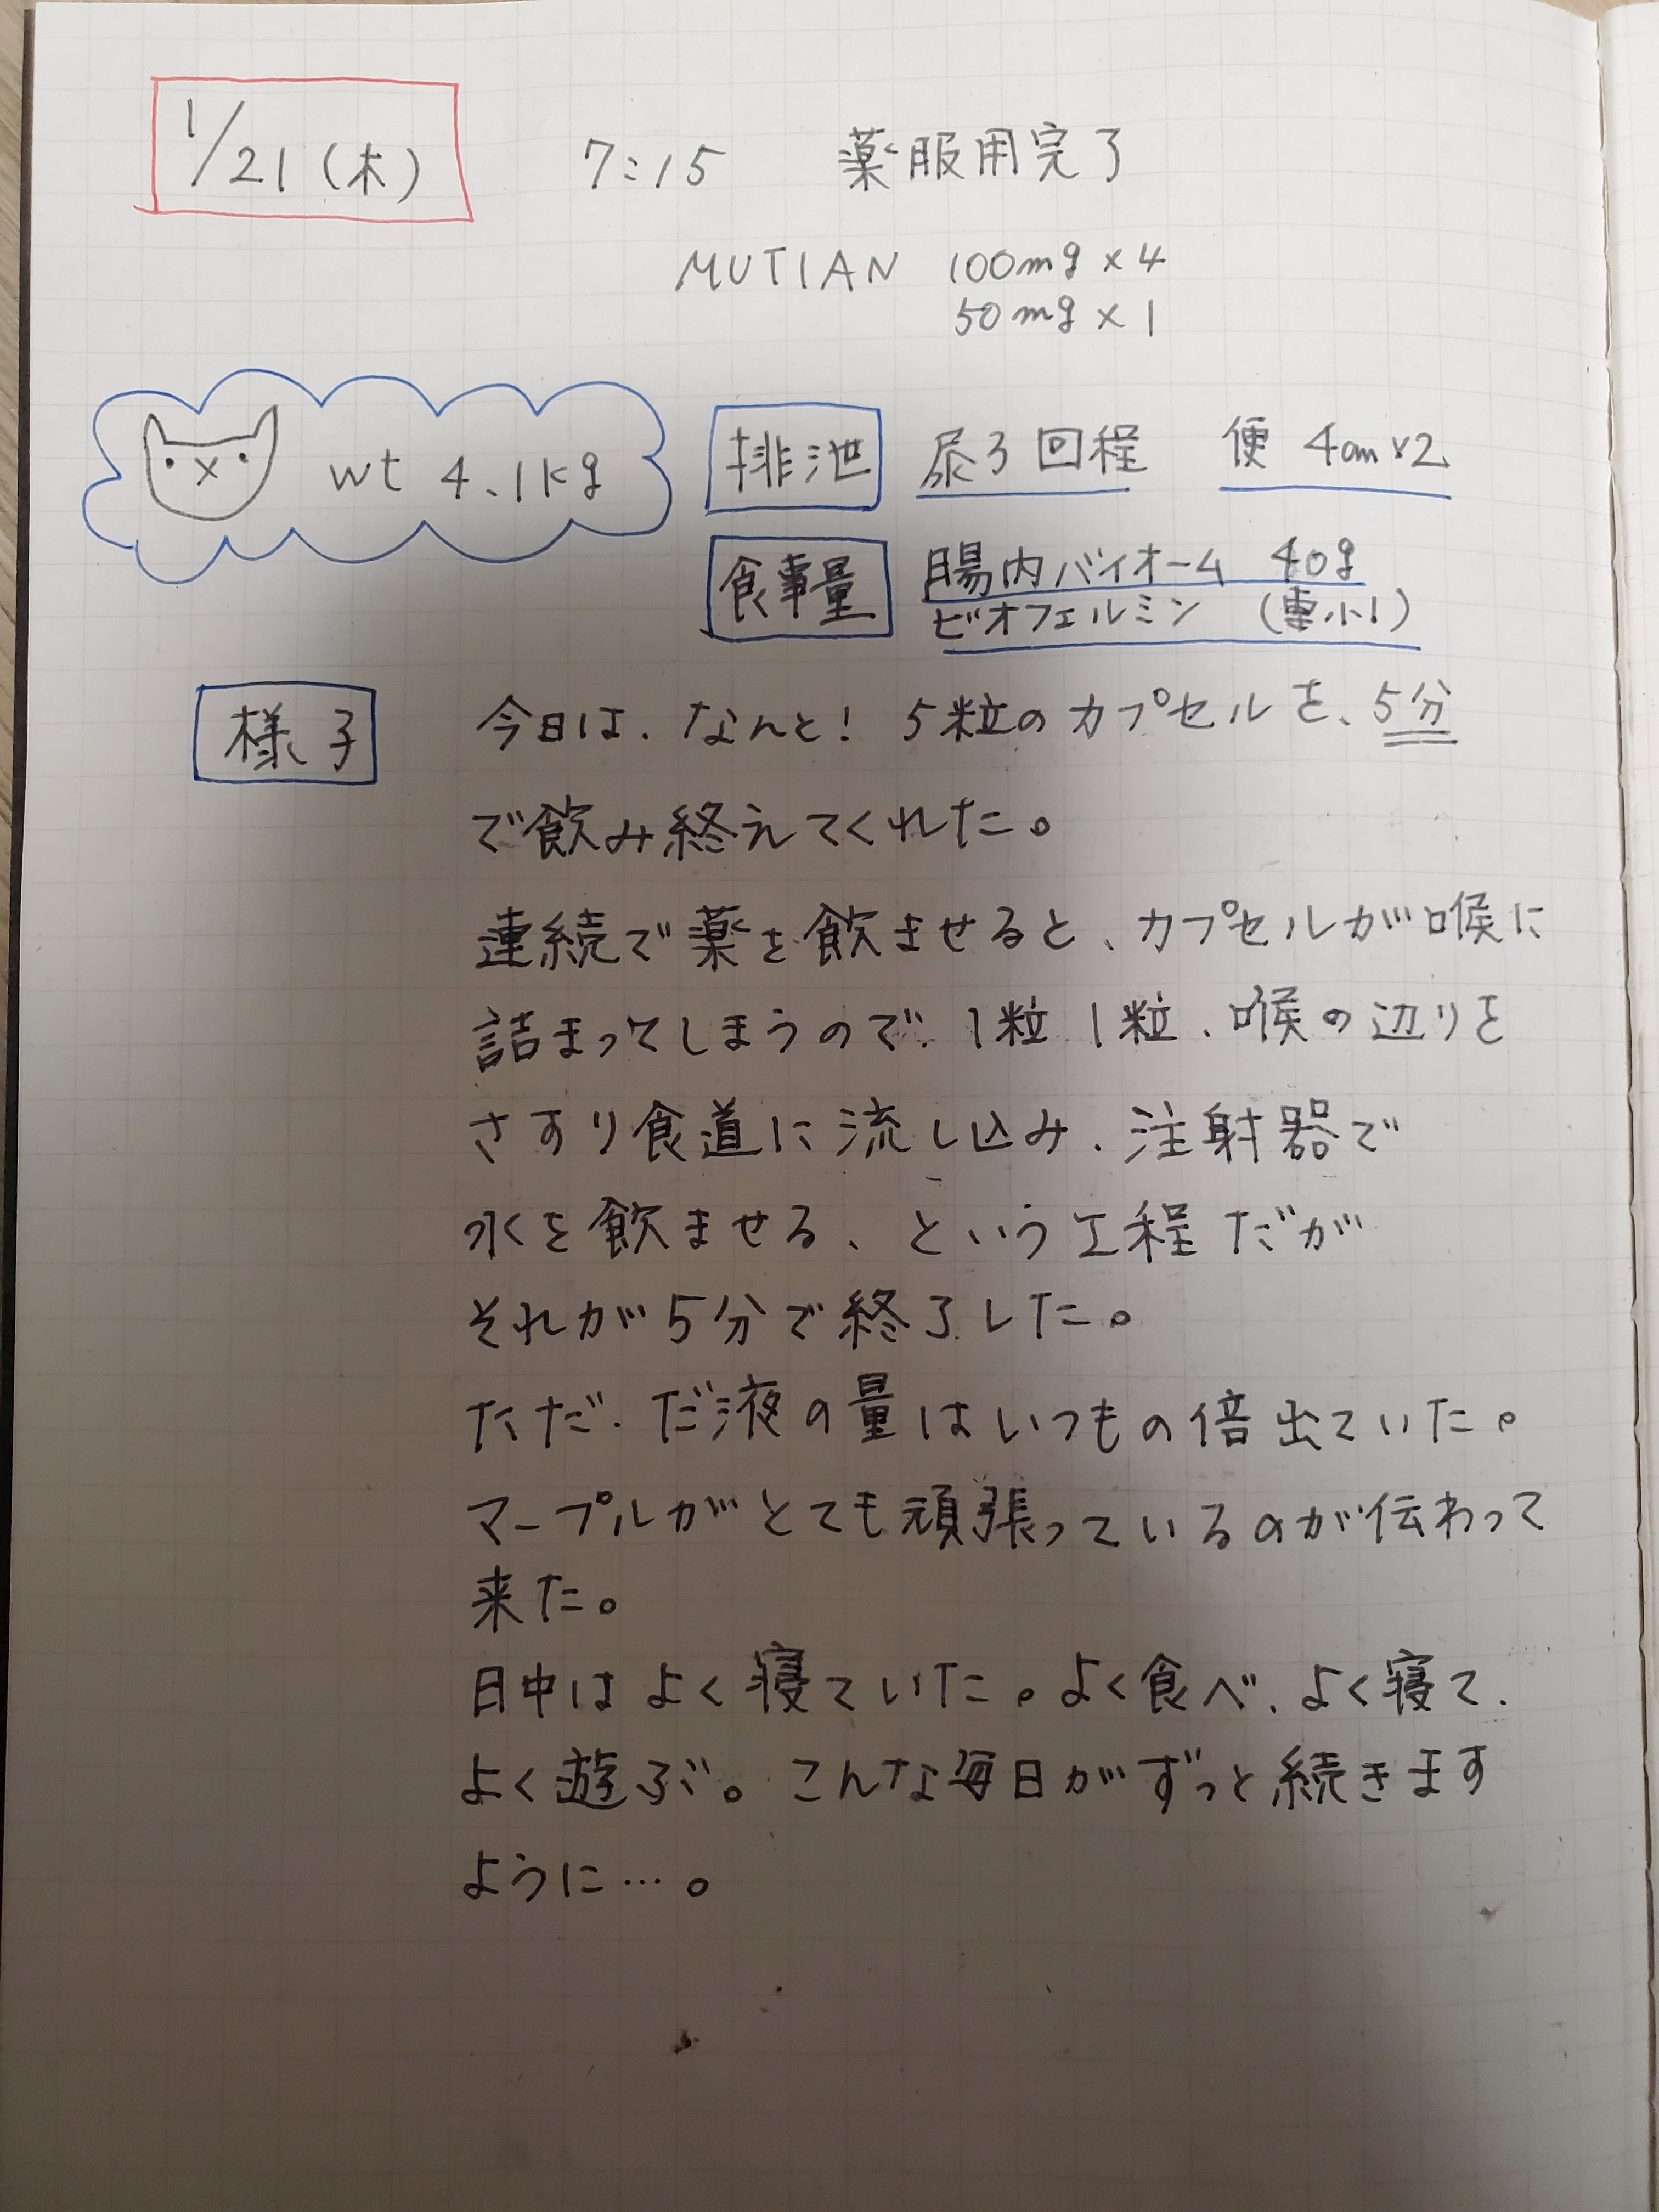 1/21(木) 7:15 薬服用完了
MUTIAN 100mg×4
50mg×1
wt 4.1kg
排池 尿3回程 便 4cm×2
食事量 腸内バイオーム 40g
ビオフェルミン (小1)
様子 今日は、なんと! 5粒のカプセルを、5分
で飲み終えてくれた。
連続で薬を飲ませると、カプセルが喉に
詰まってしまうので、1粒1粒、喉の辺りを
さすり食道に流し込み、注射器で
水を飲ませる、という工程だが
それが5分で終了した。
ただ、だ液の量はいつもの倍出ていた。
マープルがとても頑張っているのが伝わって
来た。
日中はよく寝ていた。よく食べ、よく寝て、
よく遊ぶ。こんな毎日がずっと続きます
ように…。